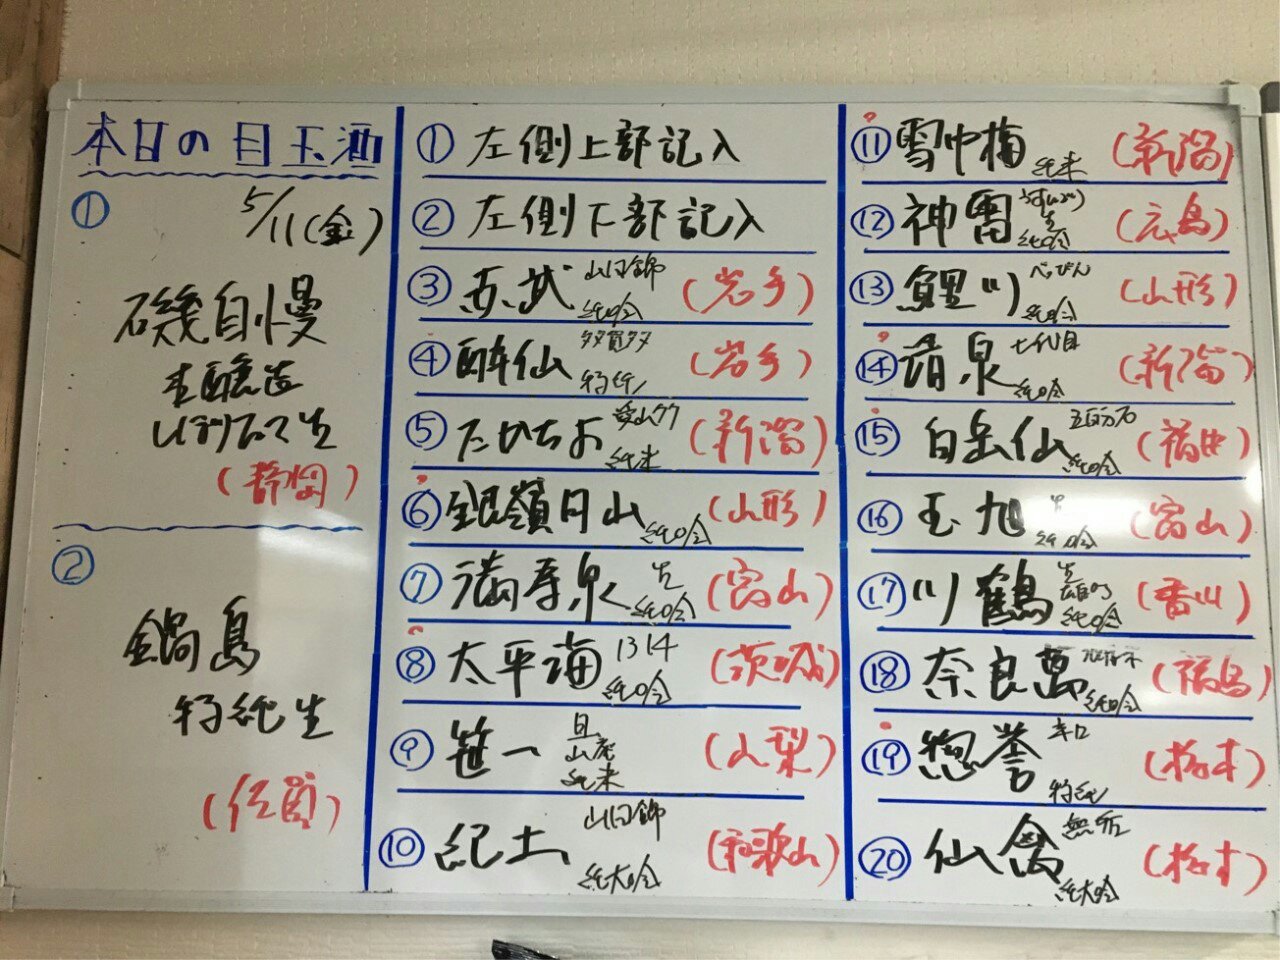 本日の目玉酒
① 5/11(金)
磯自慢
本醸造
しぼりたて生
(静岡)
②
鍋島
特純生
(佐賀)
① 左側上部記入
② 左側下部記入
③ 赤武 山田錦 純吟 (岩手)
④ 酔仙 多賀多 特純 (岩手)
⑤ たかちよ 愛山 純米 (新潟)
⑥ 銀嶺月山 純吟 (山形)
⑦ 満寿泉 生 純吟 (富山)
⑧ 太平海 1314 純吟 (茨城)
⑨ 笹一 旦 山廃 純米 (山梨)
⑩ 紀土 山田錦 純大吟 (和歌山)
⑪ 雪中梅 純米 (新潟)
⑫ 神雷 生 純吟 (広島)
⑬ 鯉川 べっぴん 純吟 (山形)
⑭ 清泉 七代目 純吟 (新潟)
⑮ 白岳仙 五百万石 純吟 (福井)
⑯ 玉旭 生 純吟 (富山)
⑰ 川鶴 生 雄町 純吟 (香川)
⑱ 奈良萬 純吟 (福島)
⑲ 惣誉 辛口 特純 (栃木)
⑳ 仙禽 無垢 純大吟 (栃木)